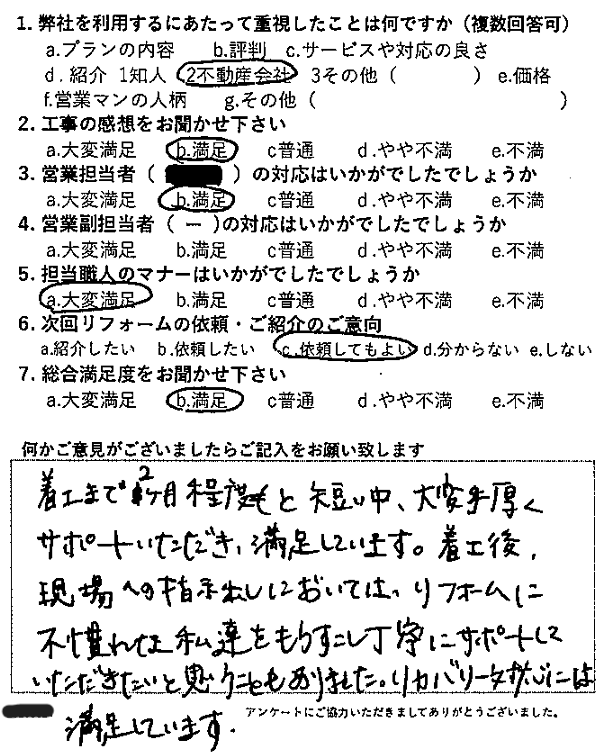 1. 弊社を利用するにあたって重視したことは何ですか（複数回答可）
a.プランの内容 b.評判 c.サービスや対応の良さ
d.紹介 1知人 2不動産会社 3その他（ ） e.価格
f.営業マンの人柄 g.その他（ ）
2. 工事の感想をお聞かせ下さい
a.大変満足 b.満足 c普通 d.やや不満 e.不満
3. 営業担当者（ ）の対応はいかがでしたでしょうか
a.大変満足 b.満足 c普通 d.やや不満 e.不満
4. 営業副担当者（ー）の対応はいかがでしたでしょうか
a.大変満足 b.満足 c普通 d.やや不満 e.不満
5. 担当職人のマナーはいかがでしたでしょうか
a.大変満足 b.満足 c普通 d.やや不満 e.不満
6. 次回リフォームの依頼・ご紹介のご意向
a.紹介したい b.依頼したい c.依頼してもよい d.分からない e.しない
7. 総合満足度をお聞かせ下さい
a.大変満足 b.満足 c普通 d.やや不満 e.不満
何かご意見がございましたらご記入をお願い致します
着工まで2ヶ月程度と短い中、大変手厚く
サポートいただき、満足しています。着工後、
現場への指示出しにおいては、リフォームに
不慣れな私達をもう少し丁寧にサポートして
いただきたいと思うこともありました。リカバリー含めには
満足しています.
アンケートにご協力いただきましてありがとうございました。